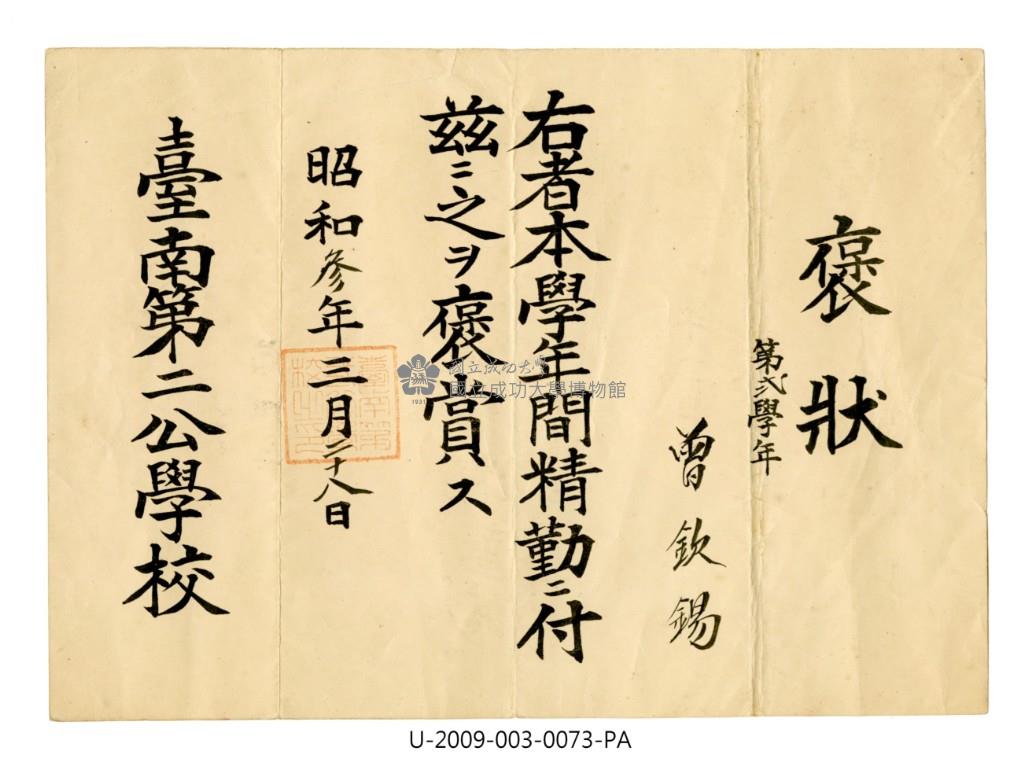 褒狀
第貳學年
曾欽錫
右者本學年間精勤ニ付
茲ニ之ヲ褒賞ス
昭和參年三月二十八日
臺南第二公學校
國立成功大學
國立成功大學博物館
1931
U-2009-003-0073-PA